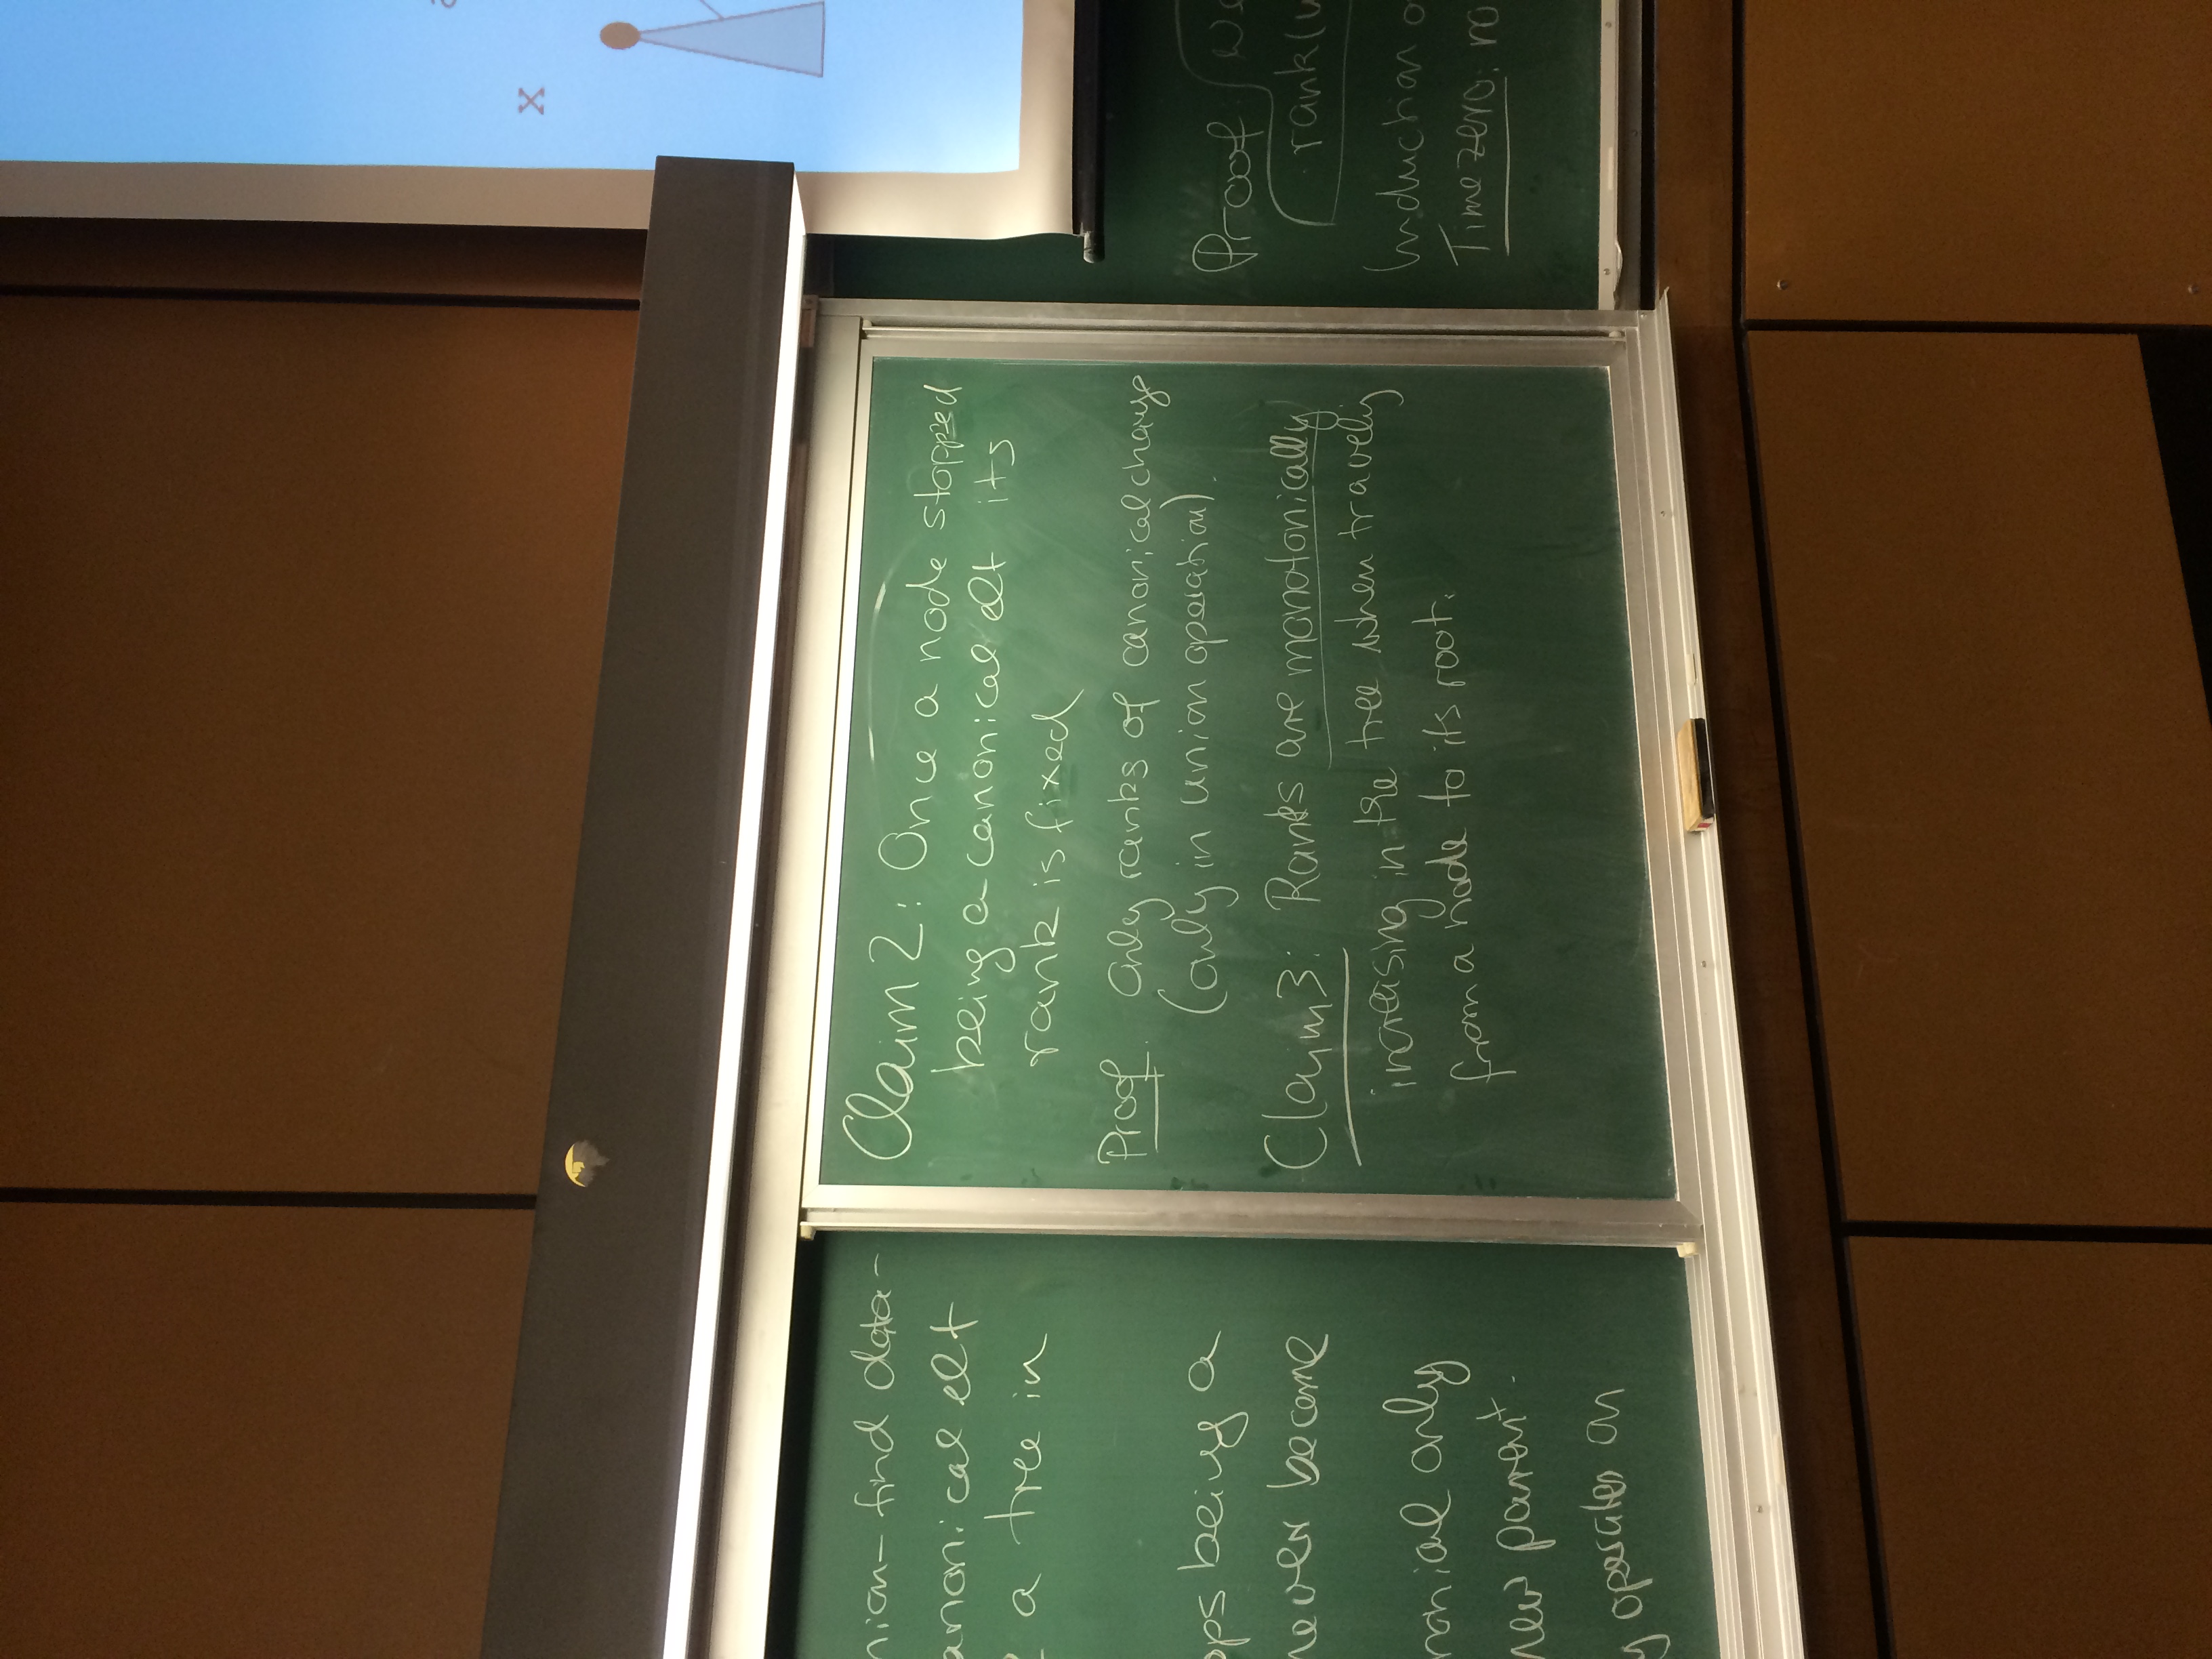 find data-
elt
a tree in
being a
never become
only
new parent.
operates on
Claim 2: Once a node stopped
being a canonical elt its
rank is fixed
Proof. Only ranks of canonical change
(only in union operation).
Claim 3: Ranks are monotonically
increasing in the tree when traveling
from a node to its root.
x
Proof. we
rank(
Induction
Time zero: